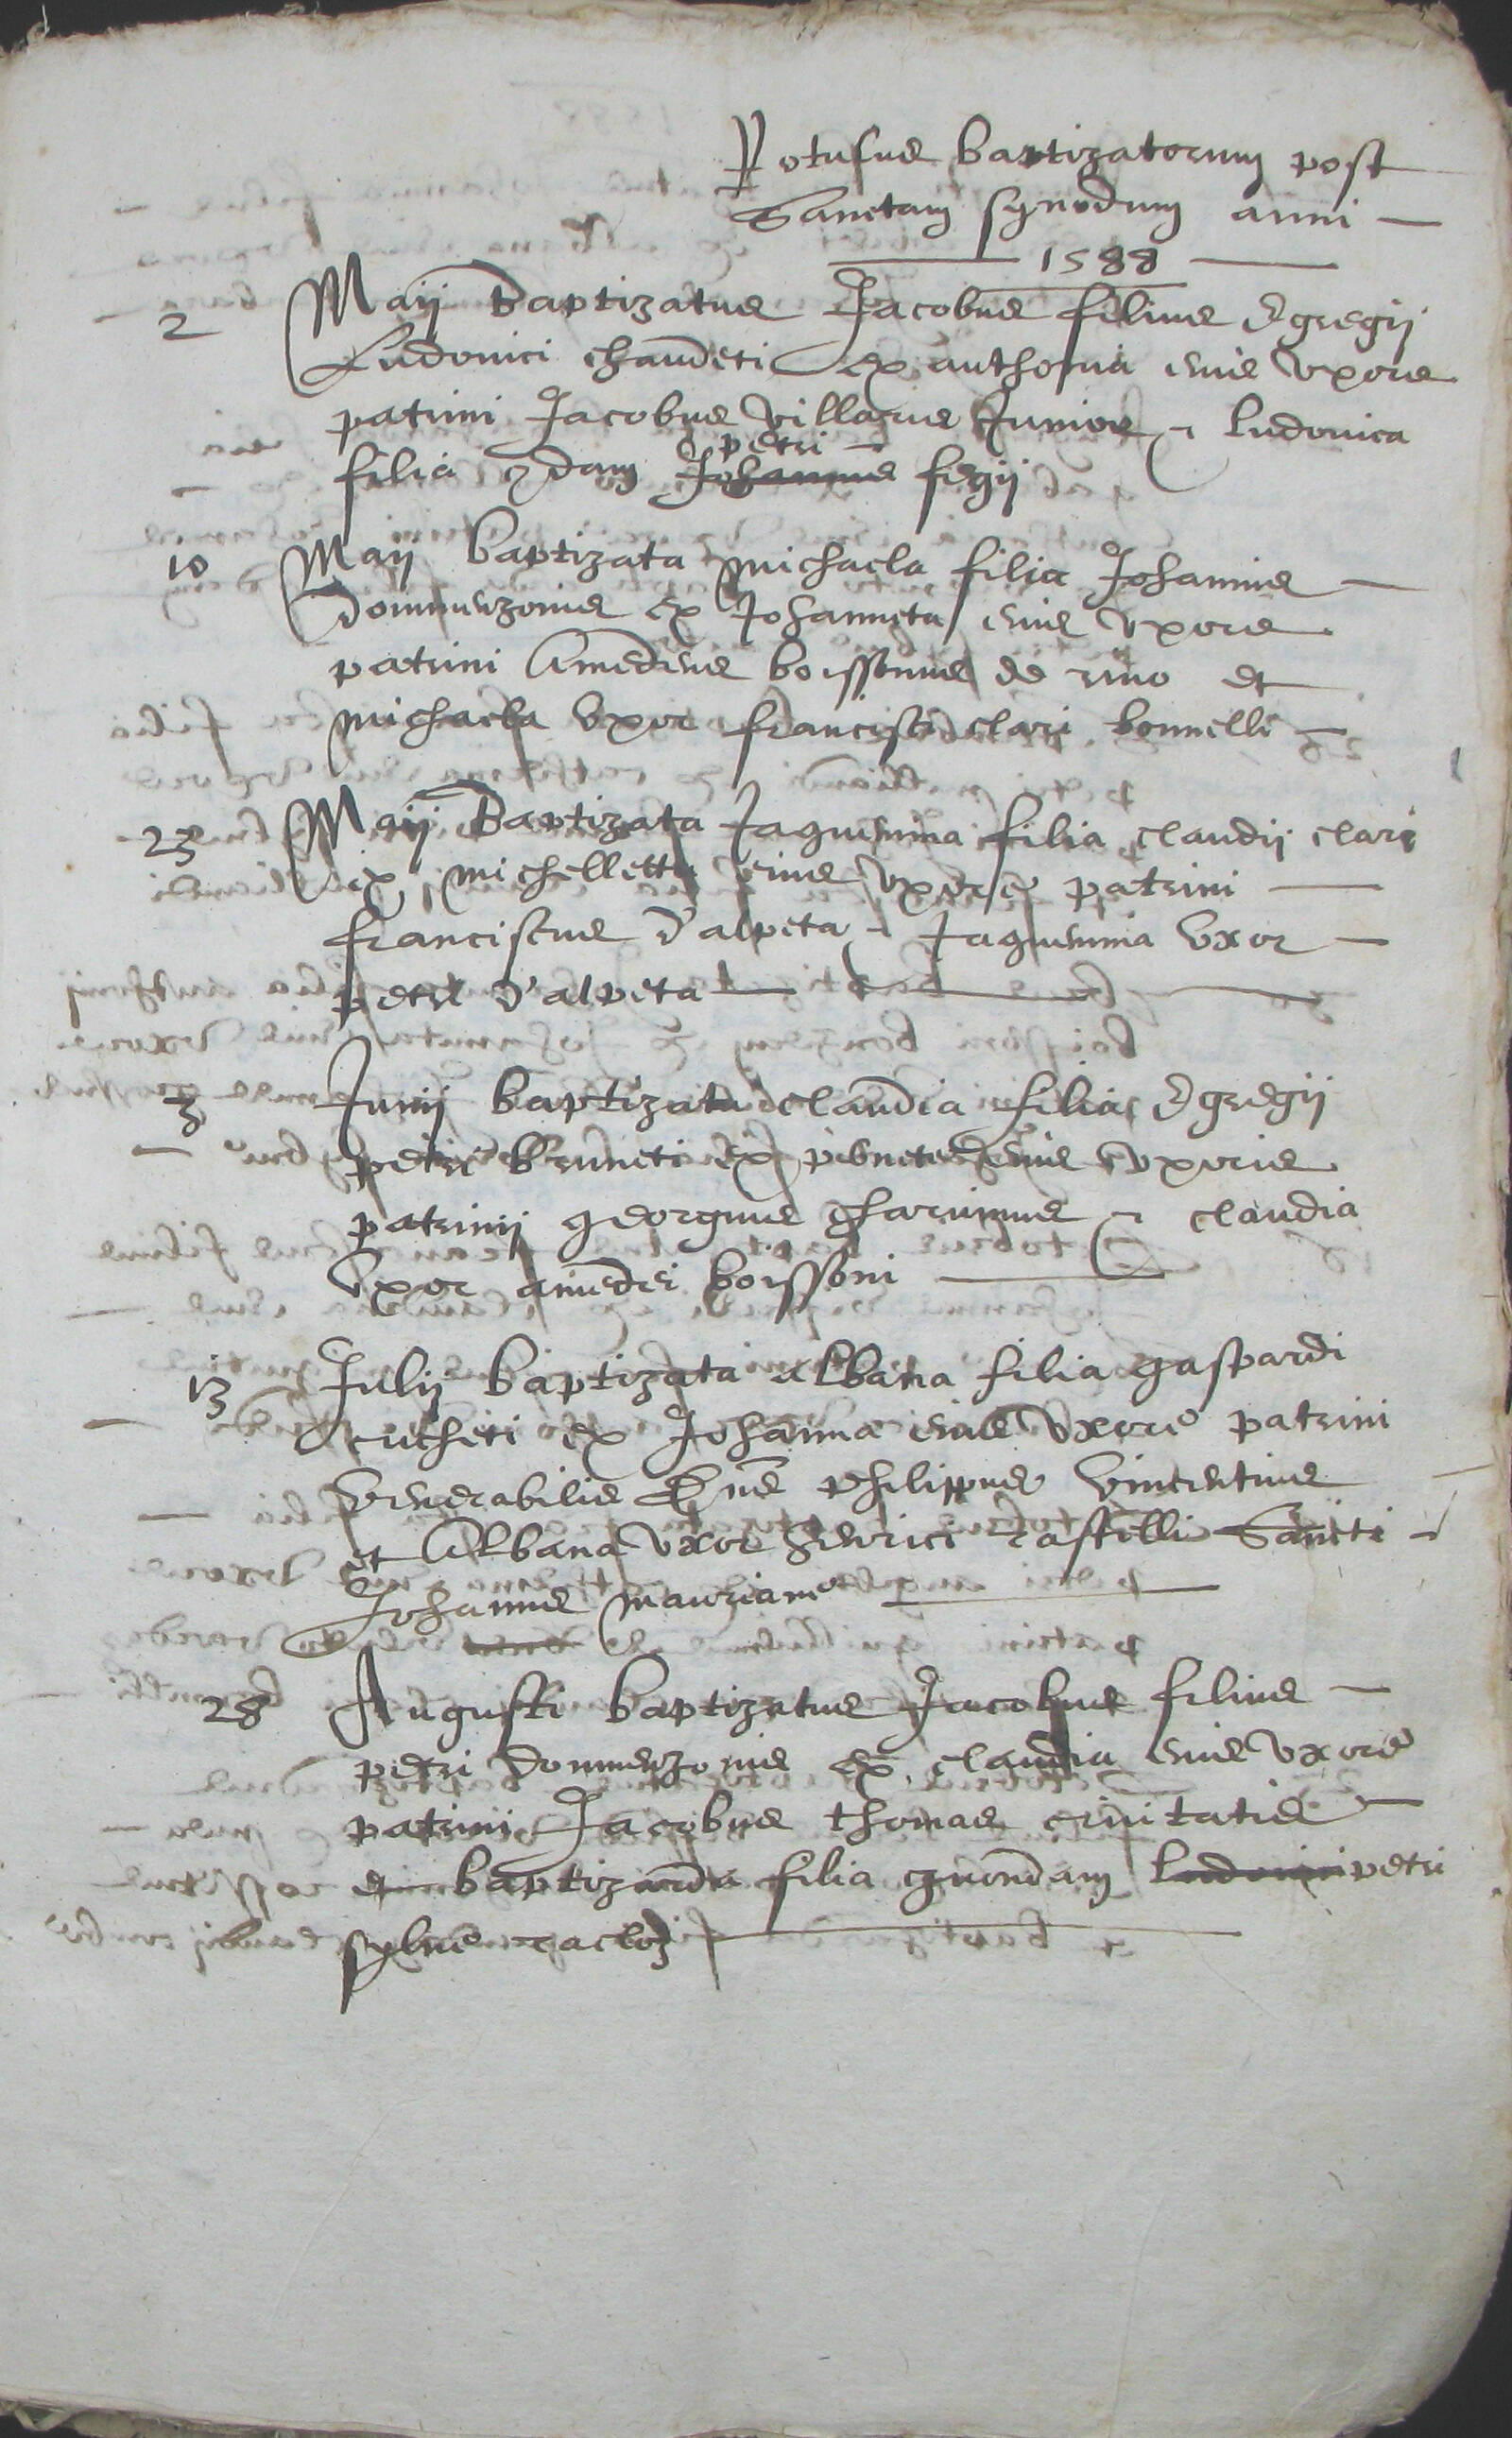 Rotulus baptizatorum post
Sanctam synodum anni
1588
2 Maij baptizatus Jacobus filius Egregij
Ludovici chaudeti ex anthonia eius uxore
patrini Jacobus Villarius Junior et ludovica
petri
filia qdam Johannis fegij
10 Maij baptizata michaela filia Johannis
dommenzonis ex Johanneta eius uxore
patrini Amedeus boissonus de rivo et
michaela uxor francisci clari bonnelli
23 Maij baptizata Jaquemina filia claudij clari
ex michelletta eius uxore patrini
franciscus d'alpeta et Jaquemina uxor
petri d'alpeta
3 Junij baptizata claudia filia Egregij
petri bruneti ex eius uxoris
patrinij georgius et claudia
uxor amedei boissoni
13 Julij baptizata albana filia gaspardi
cucheti ex Johanna eius uxore patrini
Venerabilis Dns philippus Vincentius
et Albana uxor henrici rastelli Sancti
Johannis mauriane
28 Augusti baptizatus Jacobus filius
petri dommenzonis ex claudia eius uxore
patrini Jacobus thomas civitatis
et filia quondam ludovici petri
sylve